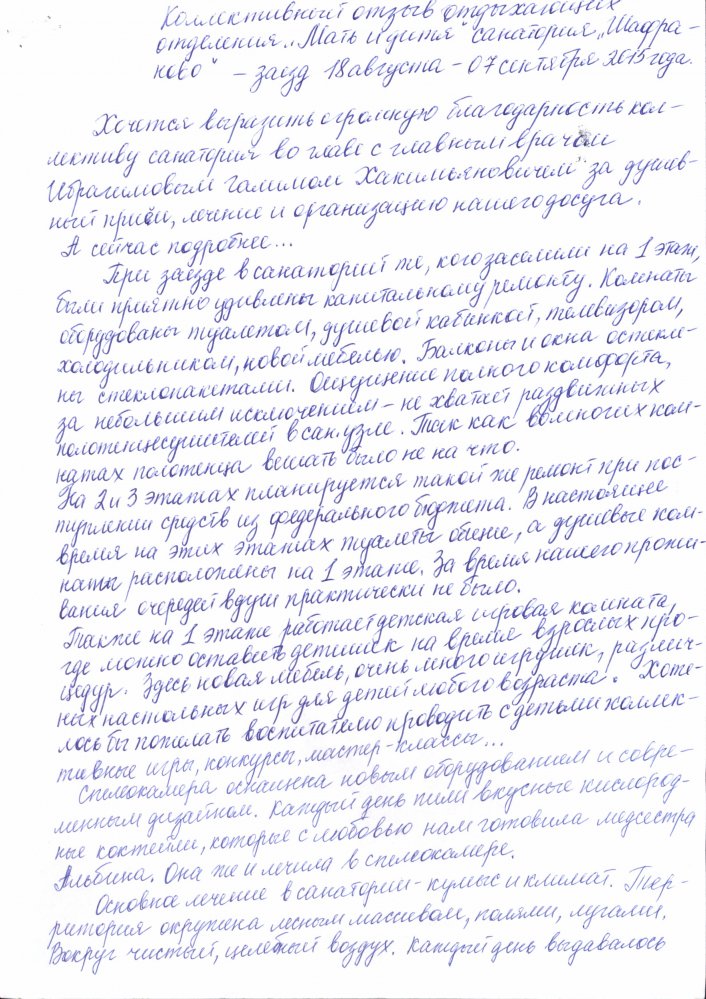 Коллективный отзыв отдыхающих
отделения „Мать и дитя" санатория „Шафра-
ново" – заезд 18 августа – 07 сентября 2015 года.
Хочется выразить огромную благодарность кол-
лективу санатория во главе с главным врачом
Ибрагимовым Галимом Хакимьяновичем за душев-
ный приём, лечение и организацию нашего досуга.
А сейчас подробнее...
При заезде в санаторий те, кого заселили на 1 этаж,
были приятно удивлены капитальному ремонту. Комнаты
оборудованы туалетом, душевой кабинкой, телевизором,
холодильником, новой мебелью. Балконы и окна остекле-
ны стеклопакетами. Ощущение полного комфорта,
за небольшим исключением – не хватает раздвижных
полотенцесушителей в сан.узле. Так как во многих ком-
натах полотенца вешать было не на что.
На 2 и 3 этажах планируется такой же ремонт при пос-
туплении средств из федерального бюджета. В настоящее
время на этих этажах туалеты общие, а душевые ком-
наты расположены на 1 этаже. За время нашего прожи-
вания очередей в душ практически не было.
Также на 1 этаже работает детская игровая комната,
где можно оставить детишек на время взрослых про-
цедур. Здесь новая мебель, очень много игрушек, различ-
ных настольных игр для детей любого возраста. Хоте-
лось бы пожелать воспитателю проводить с детьми коллек-
тивные игры, конкурсы, мастер-классы...
Спелеокамера оснащена новым оборудованием и совре-
менным дизайном. Каждый день пили вкусные кислород-
ные коктейли, которые с любовью нам готовила медсестра
Альбина. Она же и лечила в спелеокамере.
Основное лечение в санатории – кумыс и климат. Тер-
ритория окружена лесным массивом, полями, лугами.
Вокруг чистый, целебный воздух. Каждый день выдавалось